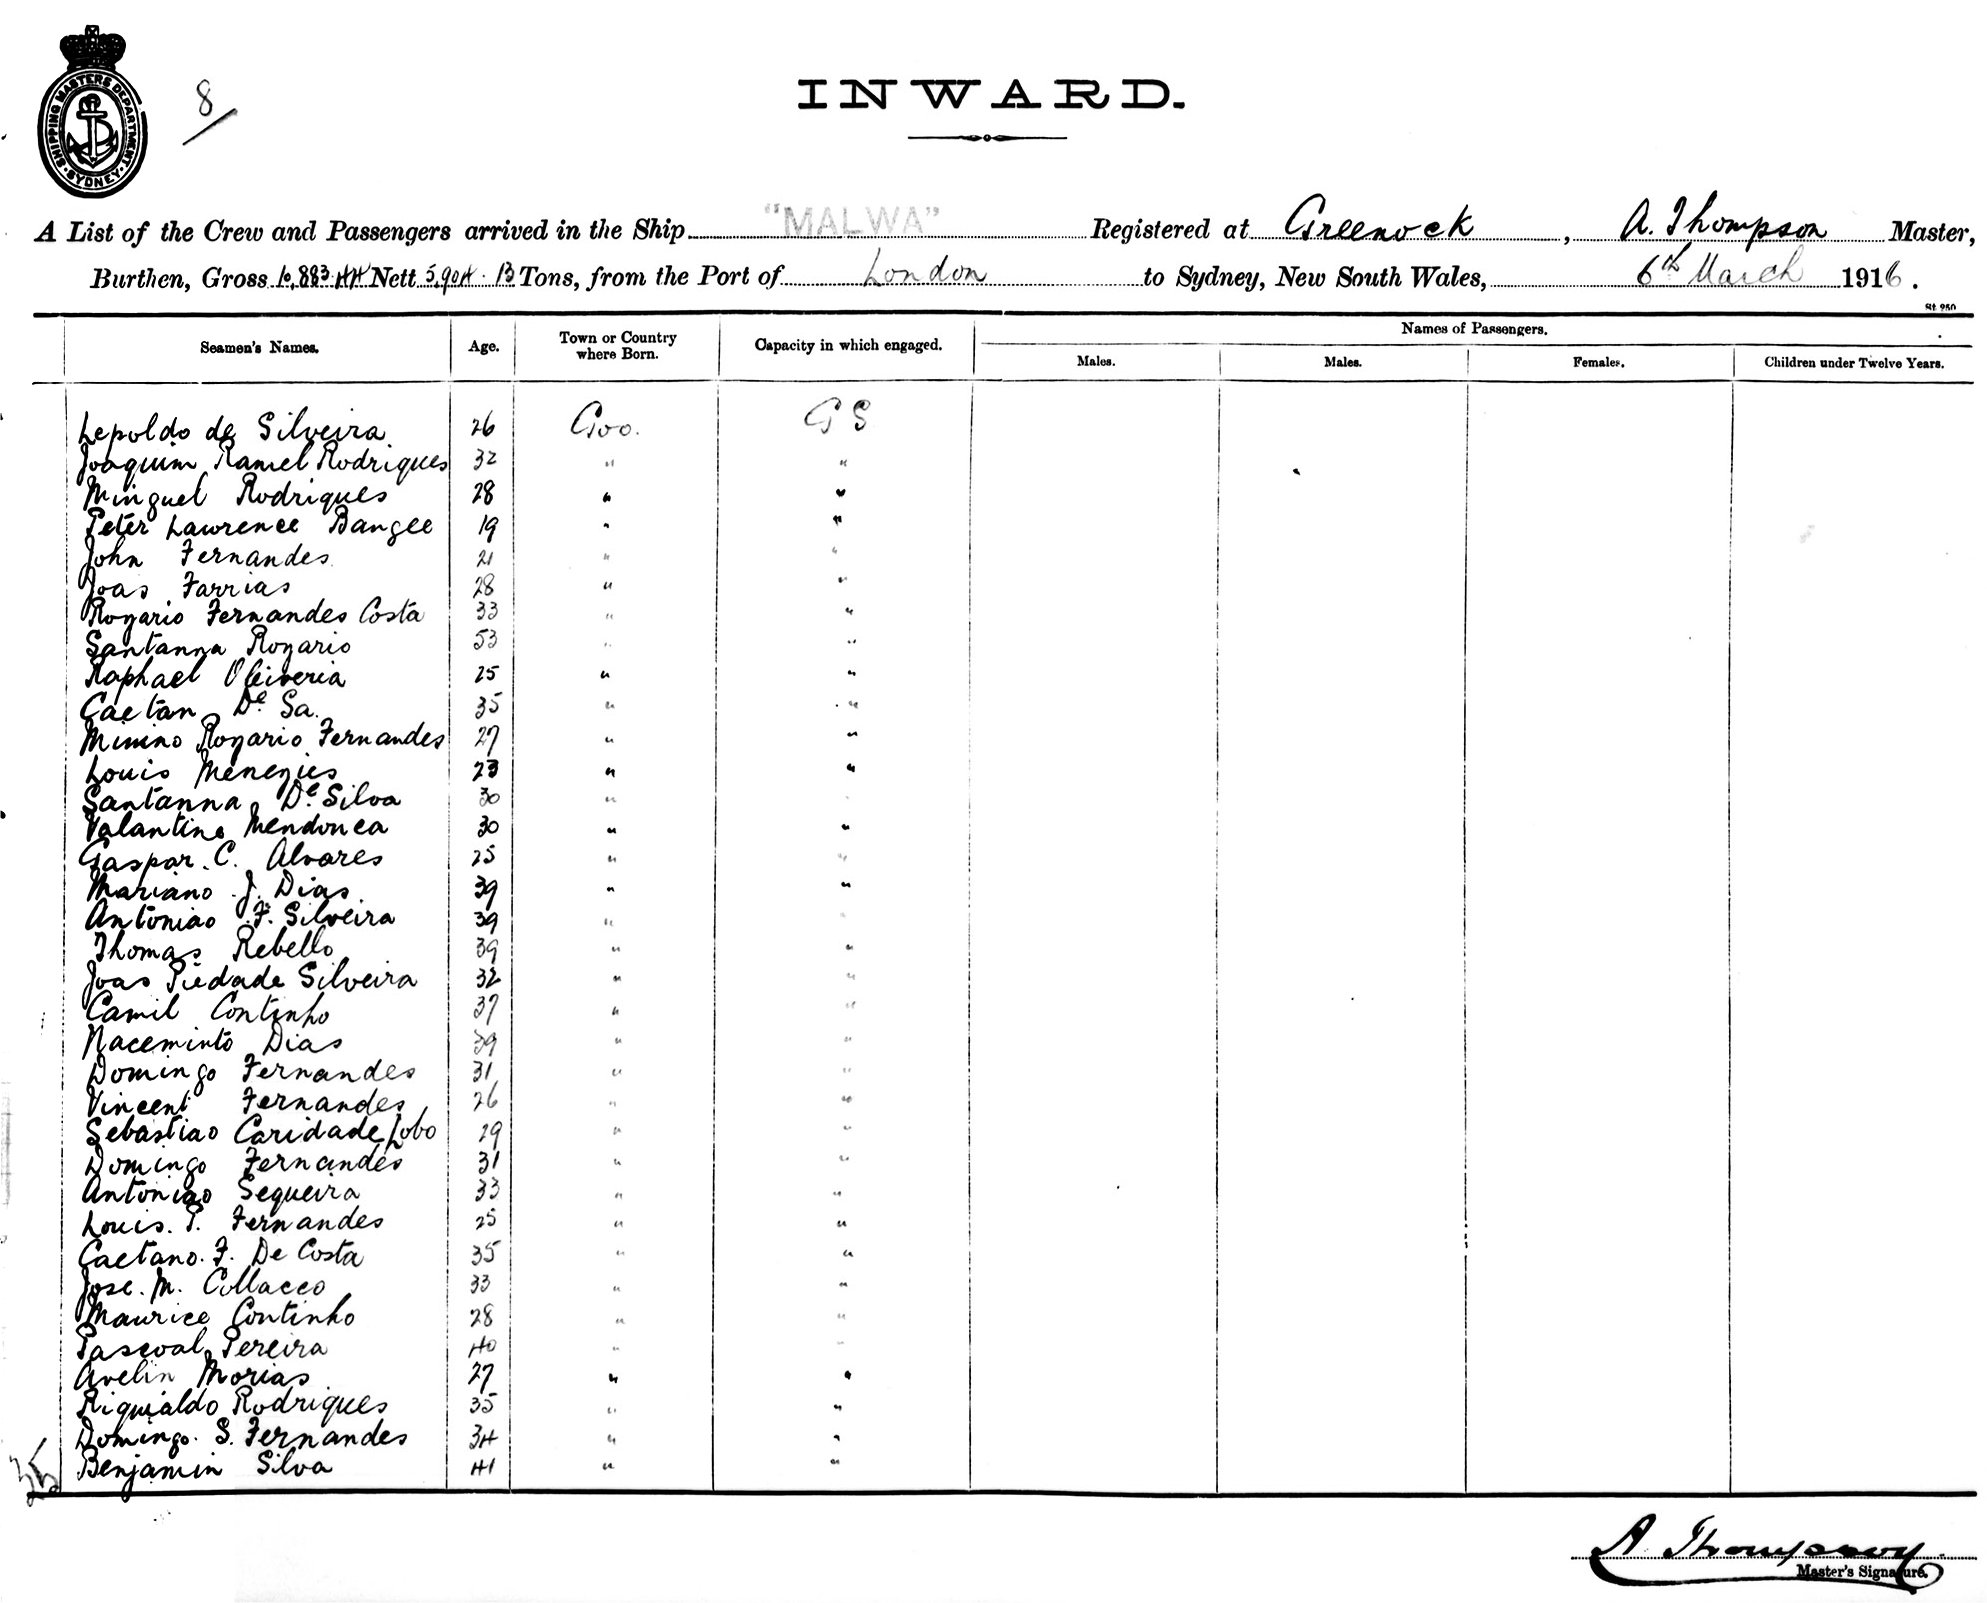 SHIPPING MASTERS DEPARTMENT
SYDNEY
8
INWARD.
A List of the Crew and Passengers arrived in the Ship "MALWA" Registered at Greenock, A. Thompson Master,
Burthen, Gross 10,883.44 Nett 5,904.13 Tons, from the Port of London to Sydney, New South Wales, 6th March 1916.
St 250
Names of Passengers.
Seamen's Names. Age. Town or Country where Born. Capacity in which engaged. Males. Males. Females. Children under Twelve Years.
Lepoldo de Silveira 26 Goo. G S
Joaquim Ramel Rodrigues 32 " "
Minguel Rodriques 28 " "
Peter Lawrence Bangee 19 " "
John Fernandes 21 " "
Joas Farrias 28 " "
Rozario Fernandes Costa 33 " "
Santanna Rozario 53 " "
Raphael Oliiveria 25 " "
Caetan De Sa. 35 " "
Minino Rozario Fernandes 27 " "
Louis Menezies 23 " "
Santanna De Silva 30 "
Valantino Mendonca 30 " "
Gaspar. C. Alvares 25 " "
Mariano J. Dias 39 " "
Antoniao F. Silveira 39 " "
Thomas Rebello 39 " "
Joas Piedade Silveira 32 " "
Camil Continho 37 " "
Naceminto Dias 39 " "
Domingo Fernandes 31 " "
Vincent Fernandes 26 " "
Sebastiao Caridade Lobo 29 " "
Domingo Fernandes 31 " "
Antoniao Sequeira 33 " "
Louis. P. Fernandes 25 " "
Caetano. F. De Costa 35 " "
Jose. M. Collaceo 33 " "
Maurice Continho 28 " "
Pascoal Pereira 40 " "
Avelin Morias 27 " "
Riquialdo Rodriques 35 " "
Domingo. S. Fernandes 34 " "
35 Benjamin Silva 41 " "
A. Thompson
Master's Signature.